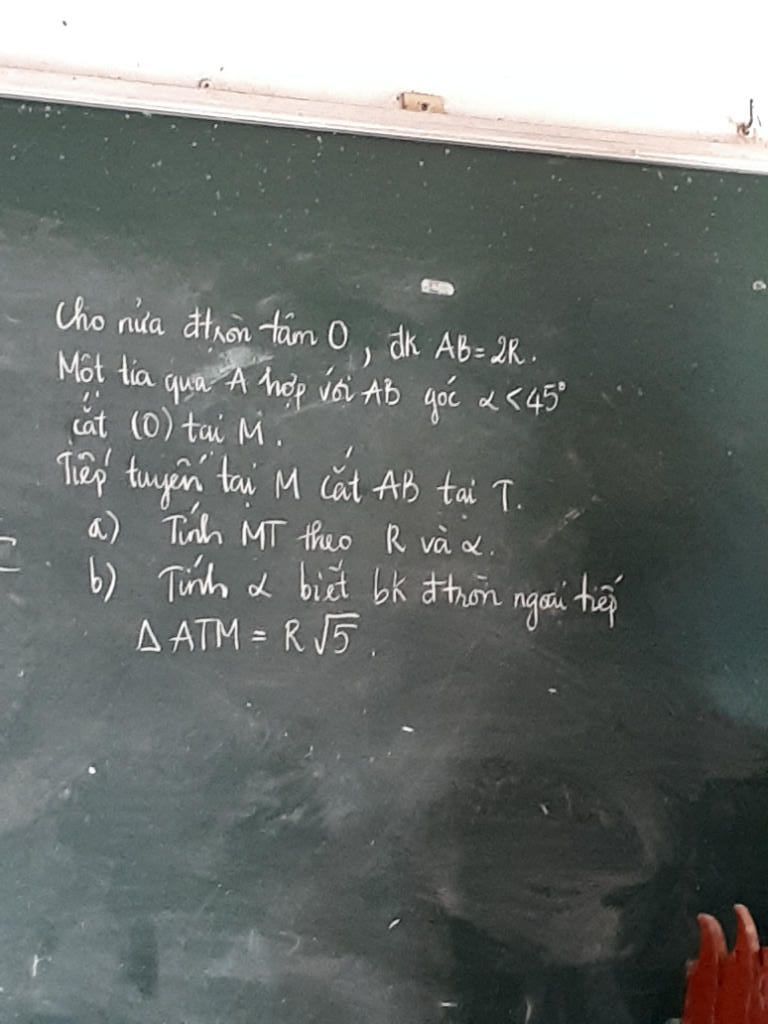 Cho nửa đtròn tâm O, đk AB = 2R.
Một tia qua A hợp với AB góc α < 45°
cắt (O) tại M.
Tiếp tuyến tại M cắt AB tại T.
a) Tính MT theo R và α.
b) Tính α biết bk đtròn ngoại tiếp
Δ ATM = R√5.